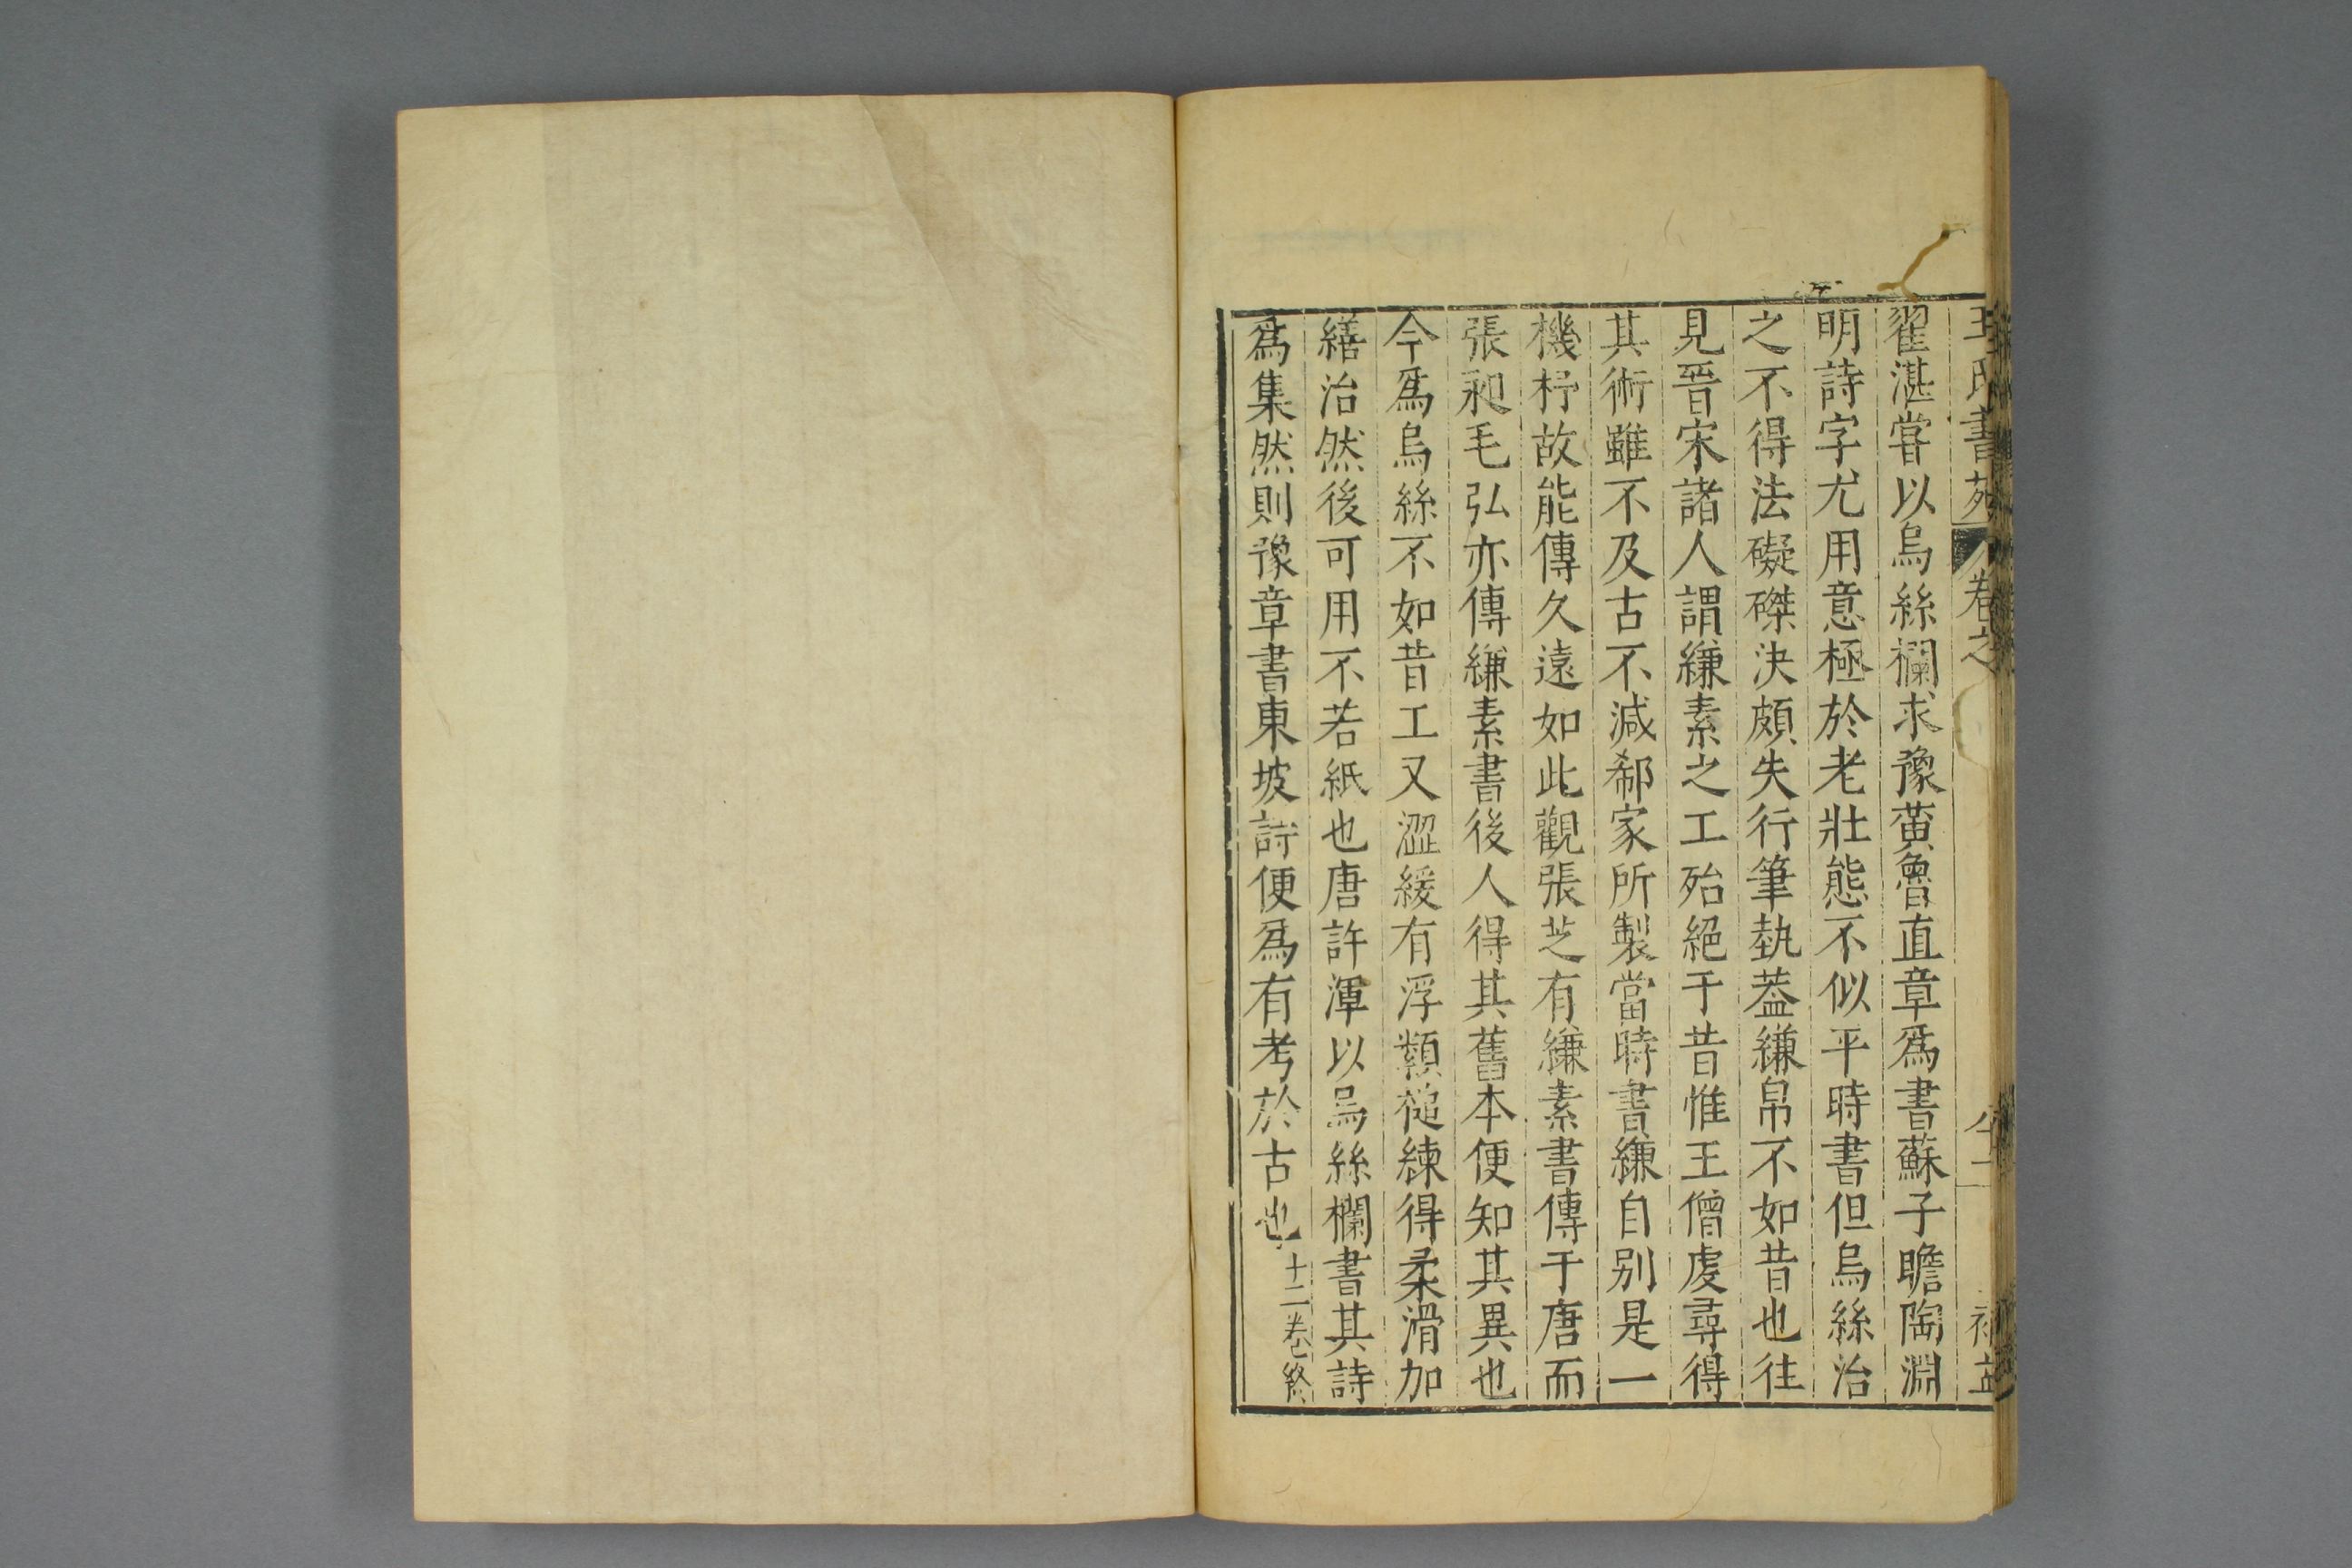 王氏書苑 卷之
翟湛甞以烏絲欄求豫黄魯直章爲書蘇子瞻陶淵
明詩字尤用意極於老壯態不似平時書但烏絲治
之不得法礙磔決頗失行筆埶葢縑帛不如昔也往
見晉宋諸人謂縑素之工殆絕于昔惟王僧虔尋得
其術雖不及古不減郗家所製當時書縑自别是一
機杼故能傳久遠如此觀張芝有縑素書傳于唐而
張昶毛弘亦傳縑素書後人得其舊本便知其異也
今爲烏絲不如昔工又澀緩有浮纇槌練得柔滑加
繕治然後可用不若紙也唐許渾以烏絲欄書其詩
爲集然則豫章書東坡詩便爲有考於古也
十二卷終